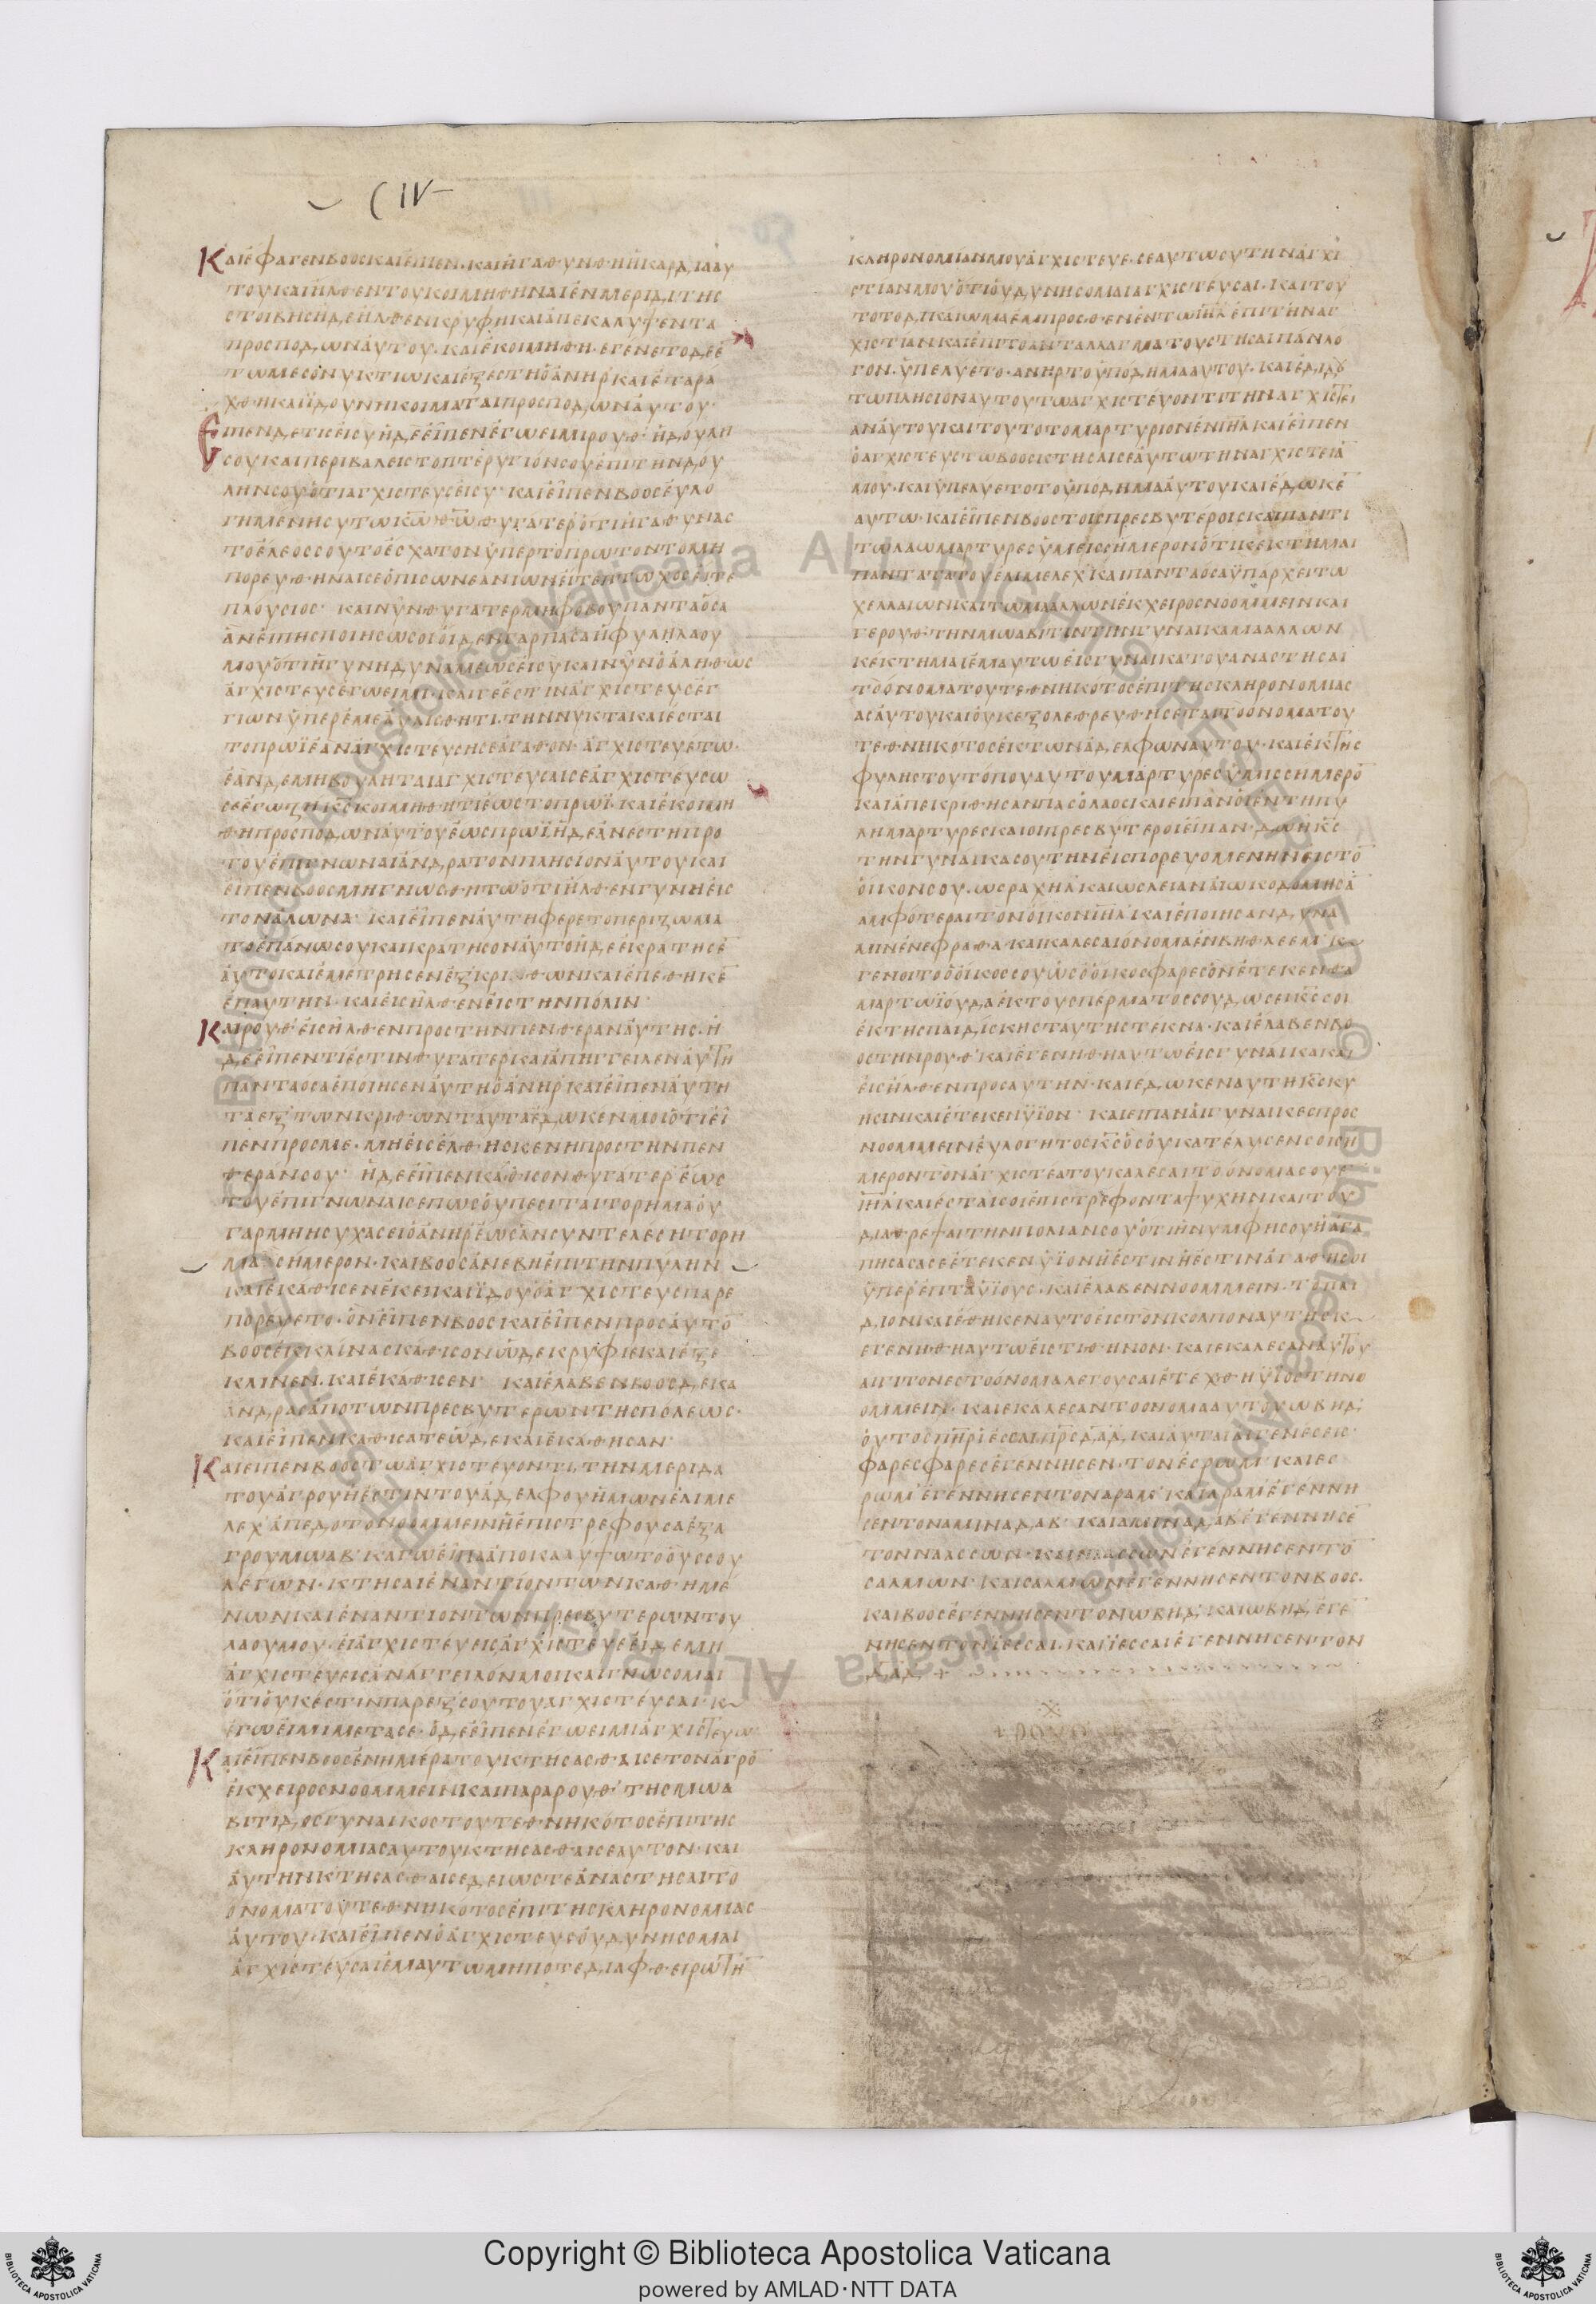 CIV
ΚΑΙΕΦΑΓΕΝΒΟΟΣΚΑΙΕΠΙΕΝ·ΚΑΙΗΓΑΘΥΝΘΗΗΚΑΡΔΙΑΑΥ
ΤΟΥΚΑΙΗΛΘΕΝΤΟΥΚΟΙΜΗΘΗΝΑΙΕΝΜΕΡΙΔΙΤΗΣ
ΣΤΟΙΒΗΣΗΔΕΗΛΘΕΝΚΡΥΦΗΚΑΙΑΠΕΚΑΛΥΨΕΝΤΑ
ΠΡΟΣΠΟΔΩΝΑΥΤΟΥ·ΚΑΙΕΚΟΙΜΗΘΗ·ΕΓΕΝΕΤΟΔΕΕ
ΤΩΜΕΣΟΝΥΚΤΙΩΚΑΙΕΞΕΣΤΗΟΑΝΗΡΚΑΙΕΤΑΡΑ
ΧΘΗΚΑΙΪΔΟΥΓΥΝΗΚΟΙΜΑΤΑΙΠΡΟΣΠΟΔΩΝΑΥΤΟΥ·
ΕΙΠΕΝΔΕΤΙΣΕΙΣΥΗΔΕΕΙΠΕΝΕΓΩΕΙΜΙΡΟΥΘ·ΗΔΟΥΛΗ
ΣΟΥΚΑΙΠΕΡΙΒΑΛΕΙΣΤΟΠΤΕΡΥΓΙΟΝΣΟΥΕΠΙΤΗΝΔΟΥ
ΛΗΝΣΟΥΟΤΙΑΓΧΙΣΤΕΥΣΕΙΣΥ·ΚΑΙΕΙΠΕΝΒΟΟΣΕΥΛΟ
ΓΗΜΕΝΗΣΥΤΩΚΩΘΩΘΥΓΑΤΕΡΟΤΙΗΓΑΘΥΝΑΣ
ΤΟΕΛΕΟΣΣΟΥΤΟΕΣΧΑΤΟΝΥΠΕΡΤΟΠΡΩΤΟΝΤΟΜΗ
ΠΟΡΕΥΘΗΝΑΙΣΕΟΠΙΣΩΝΕΑΝΙΩΝΕΙΤΕΠΤΩΧΟΣΕΙΤΕ
ΠΛΟΥΣΙΟΣ·ΚΑΙΝΥΝΘΥΓΑΤΕΡΜΗΦΟΒΟΥΠΑΝΤΑΟΣΑ
ΑΝΕΙΠΗΣΠΟΙΗΣΩΣΟΙΟΙΔΕΝΓΑΡΠΑΣΑΗΦΥΛΗΛΑΟΥ
ΜΟΥΟΤΙΗΓΥΝΗΔΥΝΑΜΕΩΣΕΙΣΥΚΑΙΝΥΝΟΑΛΗΘΩΣ
ΑΓΧΙΣΤΕΥΣΕΓΩΕΙΜΙ·ΚΑΙΓΕΕΣΤΙΝΑΓΧΙΣΤΕΥΣΕΓ
ΓΙΩΝΥΠΕΡΕΜΕΑΥΛΙΣΘΗΤΙ·ΤΗΝΝΥΚΤΑΚΑΙΕΣΤΑΙ
ΤΟΠΡΩΪΕΑΝΑΓΧΙΣΤΕΥΣΗΣΕΑΓΑΘΟΝ·ΑΓΧΙΣΤΕΥΕΤΩ·
ΕΑΝΔΕΜΗΒΟΥΛΗΤΑΙΑΓΧΙΣΤΕΥΣΑΙΣΕΑΓΧΙΣΤΕΥΣΩ
ΣΕΕΓΩΖΗΚΣΚΟΙΜΗΘΗΤΙΕΩΣΤΟΠΡΩΪ·ΚΑΙΕΚΟΙΜΗ
ΘΗΠΡΟΣΠΟΔΩΝΑΥΤΟΥΕΩΣΠΡΩΪΗΔΕΑΝΕΣΤΗΠΡΟ
ΤΟΥΕΠΙΓΝΩΝΑΙΑΝΔΡΑΤΟΝΠΛΗΣΙΟΝΑΥΤΟΥΚΑΙ
ΕΙΠΕΝΒΟΟΣΜΗΓΝΩΣΘΗΤΩΟΤΙΗΛΘΕΝΓΥΝΗΕΙΣ
ΤΟΝΑΛΩΝΑ·ΚΑΙΕΙΠΕΝΑΥΤΗΦΕΡΕΤΟΠΕΡΙΖΩΜΑ
ΤΟΕΠΑΝΩΣΟΥΚΑΙΚΡΑΤΗΣΟΝΑΥΤΟΗΔΕΕΚΡΑΤΗΣΕ
ΑΥΤΟΚΑΙΕΜΕΤΡΗΣΕΝΕΞΚΡΙΘΩΝΚΑΙΕΠΕΘΗΚΕ
ΕΠΑΥΤΗΝ·ΚΑΙΕΙΣΗΛΘΕΝΕΙΣΤΗΝΠΟΛΙΝ·
ΚΑΙΡΟΥΘΕΙΣΗΛΘΕΝΠΡΟΣΤΗΝΠΕΝΘΕΡΑΝΑΥΤΗΣ·Η
ΔΕΕΙΠΕΝΤΙΕΣΤΙΝΘΥΓΑΤΕΡΚΑΙΑΠΗΓΓΕΙΛΕΝΑΥΤΗ
ΠΑΝΤΑΟΣΑΕΠΟΙΗΣΕΝΑΥΤΗΟΑΝΗΡΚΑΙΕΙΠΕΝΑΥΤΗ
ΤΑΕΞΤΩΝΚΡΙΘΩΝΤΑΥΤΑΕΔΩΚΕΝΜΟΙΟΤΙΕΙ
ΠΕΝΠΡΟΣΜΕ·ΜΗΕΙΣΕΛΘΗΣΚΕΝΗΠΡΟΣΤΗΝΠΕΝ
ΘΕΡΑΝΣΟΥ·ΗΔΕΕΙΠΕΝΚΑΘΙΣΟΝΘΥΓΑΤΕΡΕΩΣ
ΤΟΥΕΠΙΓΝΩΝΑΙΣΕΠΩΣΟΥΠΕΣΙΤΑΙΤΟΡΗΜΑΟΥ
ΓΑΡΜΗΗΣΥΧΑΣΕΙΟΑΝΗΡΕΩΣΑΝΣΥΝΤΕΛΕΣΗΤΟΡΗ
ΜΑΣΗΜΕΡΟΝ·ΚΑΙΒΟΟΣΑΝΕΒΗΕΠΙΤΗΝΠΥΛΗΝ
ΚΑΙΕΚΑΘΙΣΕΝΕΚΕΙΚΑΙΪΔΟΥΟΑΓΧΙΣΤΕΥΣΠΑΡΕ
ΠΟΡΕΥΕΤΟ·ΟΝΕΙΠΕΝΒΟΟΣΚΑΙΕΙΠΕΝΠΡΟΣΑΥΤΟ
ΒΟΟΣΕΚΚΛΙΝΑΣΚΑΘΙΣΟΝΩΔΕΚΡΥΦΙΕΚΑΙΕΞΕ
ΚΛΙΝΕΝ·ΚΑΙΕΚΑΘΙΣΕΝ·ΚΑΙΕΛΑΒΕΝΒΟΟΣΔΕΚΑ
ΑΝΔΡΑΣΑΠΟΤΩΝΠΡΕΣΒΥΤΕΡΩΝΤΗΣΠΟΛΕΩΣ·
ΚΑΙΕΙΠΕΝΚΑΘΙΣΑΤΕΩΔΕΚΑΙΕΚΑΘΗΣΑΝ·
ΚΑΙΕΙΠΕΝΒΟΟΣΤΩΑΓΧΙΣΤΕΥΟΝΤΙ·ΤΗΝΜΕΡΙΔΑ
ΤΟΥΑΓΡΟΥΗΕΣΤΙΝΤΟΥΑΔΕΛΦΟΥΗΜΩΝΕΛΙΜΕ
ΛΕΧΑΠΕΔΟΤΟΝΟΟΜΜΕΙΝΗΕΠΙΣΤΡΕΦΟΥΣΑΕΞΑ
ΓΡΟΥΜΩΑΒ·ΚΑΓΩΕΙΠΑΑΠΟΚΑΛΥΨΩΤΟΟΥΣΣΟΥ
ΛΕΓΩΝ·ΚΤΗΣΑΙΕΝΑΝΤΙΟΝΤΩΝΚΑΘΗΜΕ
ΝΩΝΚΑΙΕΝΑΝΤΙΟΝΤΩΝΠΡΕΣΒΥΤΕΡΩΝΤΟΥ
ΛΑΟΥΜΟΥ·ΕΙΑΓΧΙΣΤΕΥΕΙΣΑΓΧΙΣΤΕΥΕΕΙΔΕΜΗ
ΑΓΧΙΣΤΕΥΕΙΣΑΝΑΓΓΕΙΛΟΝΜΟΙΚΑΙΓΝΩΣΟΜΑΙ
ΟΤΙΟΥΚΕΣΤΙΝΠΑΡΕΞΣΟΥΤΟΥΑΓΧΙΣΤΕΥΣΑΙ·Κ
ΕΓΩΕΙΜΙΜΕΤΑΣΕ·ΟΔΕΕΙΠΕΝΕΓΩΕΙΜΙΑΓΧΙΣΤΕΥΣΩ
ΚΑΙΕΙΠΕΝΒΟΟΣΕΝΗΜΕΡΑΤΟΥΚΤΗΣΑΣΘΑΙΣΕΤΟΝΑΓΡΟ
ΕΚΧΕΙΡΟΣΝΟΟΜΜΕΙΝΚΑΙΠΑΡΑΡΟΥΘΤΗΣΜΩΑ
ΒΙΤΙΔΟΣΓΥΝΑΙΚΟΣΤΟΥΤΕΘΝΗΚΟΤΟΣΕΠΙΤΗΣ
ΚΛΗΡΟΝΟΜΙΑΣΑΥΤΟΥΚΤΗΣΑΣΘΑΙΣΕΑΥΤΟΝ·ΚΑΙ
ΑΥΤΗΝΚΤΗΣΑΣΘΑΙΣΕΔΕΙΩΣΤΕΑΝΑΣΤΗΣΑΙΤΟ
ΟΝΟΜΑΤΟΥΤΕΘΝΗΚΟΤΟΣΕΠΙΤΗΣΚΛΗΡΟΝΟΜΙΑΣ
ΑΥΤΟΥ·ΚΑΙΕΙΠΕΝΟΑΓΧΙΣΤΕΥΣΟΥΔΥΝΗΣΟΜΑΙ
ΑΓΧΙΣΤΕΥΣΑΙΕΜΑΥΤΩΜΗΠΟΤΕΔΙΑΦΘΕΙΡΩΤΗ
ΚΛΗΡΟΝΟΜΙΑΝΜΟΥΑΓΧΙΣΤΕΥΕ·ΣΕΑΥΤΩΣΥΤΗΝΑΓΧΙ
ΣΤΙΑΝΜΟΥΟΤΙΟΥΔΥΝΗΣΟΜΑΙΑΓΧΙΣΤΕΥΣΑΙ·ΚΑΙΤΟΥ
ΤΟΤΟΔΙΚΑΙΩΜΑΕΜΠΡΟΣΘΕΝΕΝΤΩΙΗΛΕΠΙΤΗΝΑΓ
ΧΙΣΤΙΑΝΚΑΙΕΠΙΤΟΑΝΤΑΛΛΑΓΜΑΤΟΥΣΤΗΣΑΙΠΑΝΛΟ
ΓΟΝ·ΥΠΕΛΥΕΤΟ·ΑΝΗΡΤΟΥΠΟΔΗΜΑΑΥΤΟΥ·ΚΑΙΕΔΙΔΟΥ
ΤΩΠΛΗΣΙΟΝΑΥΤΟΥΤΩΑΓΧΙΣΤΕΥΟΝΤΙΤΗΝΑΓΧΙΣΤΕΙ
ΑΝΑΥΤΟΥΚΑΙΤΟΥΤΟΤΟΜΑΡΤΥΡΙΟΝΕΝΙΗΛΚΑΙΕΙΠΕΝ
ΟΑΓΧΙΣΤΕΥΣΤΩΒΟΟΣΚΤΗΣΑΙΣΕΑΥΤΩΤΗΝΑΓΧΙΣΤΕΙΑ
ΜΟΥ·ΚΑΙΥΠΕΛΥΕΤΟΤΟΥΠΟΔΗΜΑΑΥΤΟΥΚΑΙΕΔΩΚΕ
ΑΥΤΩ·ΚΑΙΕΙΠΕΝΒΟΟΣΤΟΙΣΠΡΕΣΒΥΤΕΡΟΙΣΚΑΙΠΑΝΤΙ
ΤΩΛΑΩΜΑΡΤΥΡΕΣΥΜΕΙΣΣΗΜΕΡΟΝΟΤΙΚΕΚΤΗΜΑΙ
ΠΑΝΤΑΤΑΤΟΥΕΛΙΜΕΛΕΧΚΑΙΠΑΝΤΑΟΣΑΥΠΑΡΧΕΙΤΩ
ΧΕΛΛΑΙΩΝΚΑΙΤΩΜΑΑΛΛΩΝΕΚΧΕΙΡΟΣΝΟΟΜΜΕΙΝΚΑΙ
ΓΕΡΟΥΘ·ΤΗΝΜΩΑΒΙΤΙΝΤΗΝΓΥΝΑΙΚΑΜΑΑΛΛΩΝ
ΚΕΚΤΗΜΑΙΕΜΑΥΤΩΕΙΣΓΥΝΑΙΚΑΤΟΥΑΝΑΣΤΗΣΑΙ
ΤΟΟΝΟΜΑΤΟΥΤΕΘΝΗΚΟΤΟΣΕΠΙΤΗΣΚΛΗΡΟΝΟΜΙΑΣ
ΑΣΑΥΤΟΥΚΑΙΟΥΚΕΞΟΛΕΘΡΕΥΘΗΣΕΤΑΙΤΟΟΝΟΜΑΤΟΥ
ΤΕΘΝΗΚΟΤΟΣΕΚΤΩΝΑΔΕΛΦΩΝΑΥΤΟΥ·ΚΑΙΕΚΤΗΣ
ΦΥΛΗΣΤΟΥΤΟΠΟΥΑΥΤΟΥΜΑΡΤΥΡΕΣΥΜΙΣΣΗΜΕΡΟ
ΚΑΙΑΠΕΚΡΙΘΗΣΑΝΠΑΣΟΛΑΟΣΚΑΙΕΙΠΑΝΟΙΕΝΤΗΠΥ
ΛΗΜΑΡΤΥΡΕΣΚΑΙΟΙΠΡΕΣΒΥΤΕΡΟΙΕΙΠΑΝ·ΔΩΗΚΣ
ΤΗΝΓΥΝΑΙΚΑΣΟΥΤΗΝΕΙΣΠΟΡΕΥΟΜΕΝΗΝΕΙΣΤΟ
ΟΙΚΟΝΣΟΥ·ΩΣΡΑΧΗΛΚΑΙΩΣΛΕΙΑΝΑΙΩΚΟΔΟΜΗΣΑ
ΑΜΦΟΤΕΡΑΙΤΟΝΟΙΚΟΝΙΗΛ·ΚΑΙΕΠΟΙΗΣΑΝΔΥΝΑ
ΜΙΝΕΝΕΦΡΑΘΑΚΑΙΚΑΛΕΣΑΙΟΝΟΜΑΕΝΒΗΘΛΕΕΜ·Κ
ΓΕΝΟΙΤΟΟΟΙΚΟΣΣΟΥΩΣΟΟΙΚΟΣΦΑΡΕΣΟΝΕΤΕΚΕΝΘΑ
ΜΑΡΤΩΪΟΥΔΑΕΚΤΟΥΣΠΕΡΜΑΤΟΣΣΟΥΔΩΣΕΙΚΣΣΟΙ
ΕΚΤΗΣΠΑΙΔΙΣΚΗΣΤΑΥΤΗΣΤΕΚΝΑ·ΚΑΙΕΛΑΒΕΝΒΟ
ΟΣΤΗΝΡΟΥΘΚΑΙΕΓΕΝΗΘΗΑΥΤΩΕΙΣΓΥΝΑΙΚΑΚΑΙ
ΕΙΣΗΛΘΕΝΠΡΟΣΑΥΤΗΝ·ΚΑΙΕΔΩΚΕΝΑΥΤΗΚΣΚΥ
ΗΣΙΝΚΑΙΕΤΕΚΕΝΥΪΟΝ·ΚΑΙΕΙΠΑΝΑΙΓΥΝΑΙΚΕΣΠΡΟΣ
ΝΟΟΜΜΕΙΝΕΥΛΟΓΗΤΟΣΚΣΟΣΟΥΚΑΤΕΛΥΣΕΝΣΟΙΣΗ
ΜΕΡΟΝΤΟΝΑΓΧΙΣΤΕΑΤΟΥΚΑΛΕΣΑΙΤΟΟΝΟΜΑΣΟΥΕ
ΙΗΛΚΑΙΕΣΤΑΙΣΟΙΕΠΙΣΤΡΕΦΟΝΤΑΨΥΧΗΝΚΑΙΤΟΥ
ΔΙΑΘΡΕΨΑΙΤΗΝΠΟΛΙΑΝΣΟΥΟΤΙΗΝΥΜΦΗΣΟΥΗΑΓΑ
ΠΗΣΑΣΑΣΕΕΤΕΚΕΝΥΪΟΝΗΕΣΤΙΝΗΕΣΤΙΝΑΓΑΘΗΣΟΙ
ΫΠΕΡΕΠΤΑΥΪΟΥΣ·ΚΑΙΕΛΑΒΕΝΝΟΟΜΜΕΙΝ·ΤΟΠΑΙ
ΔΙΟΝΚΑΙΕΘΗΚΕΝΑΥΤΟΕΙΣΤΟΝΚΟΛΠΟΝΑΥΤΗΣΚ
ΕΓΕΝΗΘΗΑΥΤΩΕΙΣΤΙΘΗΝΟΝ·ΚΑΙΕΚΑΛΕΣΑΝΑΥΤΟΥ
ΑΙΓΙΤΟΝΕΣΤΟΟΝΟΜΑΛΕΓΟΥΣΑΙΕΤΕΧΘΗΥΪΟΣΤΗΝΟ
ΟΜΜΕΙΝ·ΚΑΙΕΚΑΛΕΣΑΝΤΟΟΝΟΜΑΑΥΤΟΥΩΒΗΔ·
ΟΥΤΟΣΠΗΡΙΕΣΣΑΙΠΡΣΔΑΔ·ΚΑΙΑΥΤΑΙΑΙΓΕΝΕΣΕΙΣ·
ΦΑΡΕΣΦΑΡΕΣΕΓΕΝΝΗΣΕΝ·ΤΟΝΕΣΡΩΜ·ΚΑΙΕΣ
ΡΩΜ·ΕΓΕΝΝΗΣΕΝΤΟΝΑΡΑΜ·ΚΑΙΑΡΑΜΕΓΕΝΝΗ
ΣΕΝΤΟΝΑΜΙΝΑΔΑΒ·ΚΑΙΑΜΕΙΝΑΔΑΒΕΓΕΝΝΗΣΕ
ΤΟΝΝΑΑΣΣΩΝ·ΚΑΙΝΑΑΣΣΩΝΕΓΕΝΝΗΣΕΝΤΟ
ΣΑΛΜΩΝ·ΚΑΙΣΑΛΜΩΝΕΓΕΝΝΗΣΕΝΤΟΝΒΟΟΣ·
ΚΑΙΒΟΟΣΕΓΕΝΝΗΣΕΝΤΟΝΩΒΗΔ·ΚΑΙΩΒΗΔΕΓΕ
ΝΗΣΕΝΤΟΝΙΕΣΣΑΙ·ΚΑΙΪΕΣΣΑΙΕΓΕΝΝΗΣΕΝΤΟΝ
ΔΑΔ
ΡΟΥΘ
Copyright © Biblioteca Apostolica Vaticana
powered by AMLAD·NTT DATA